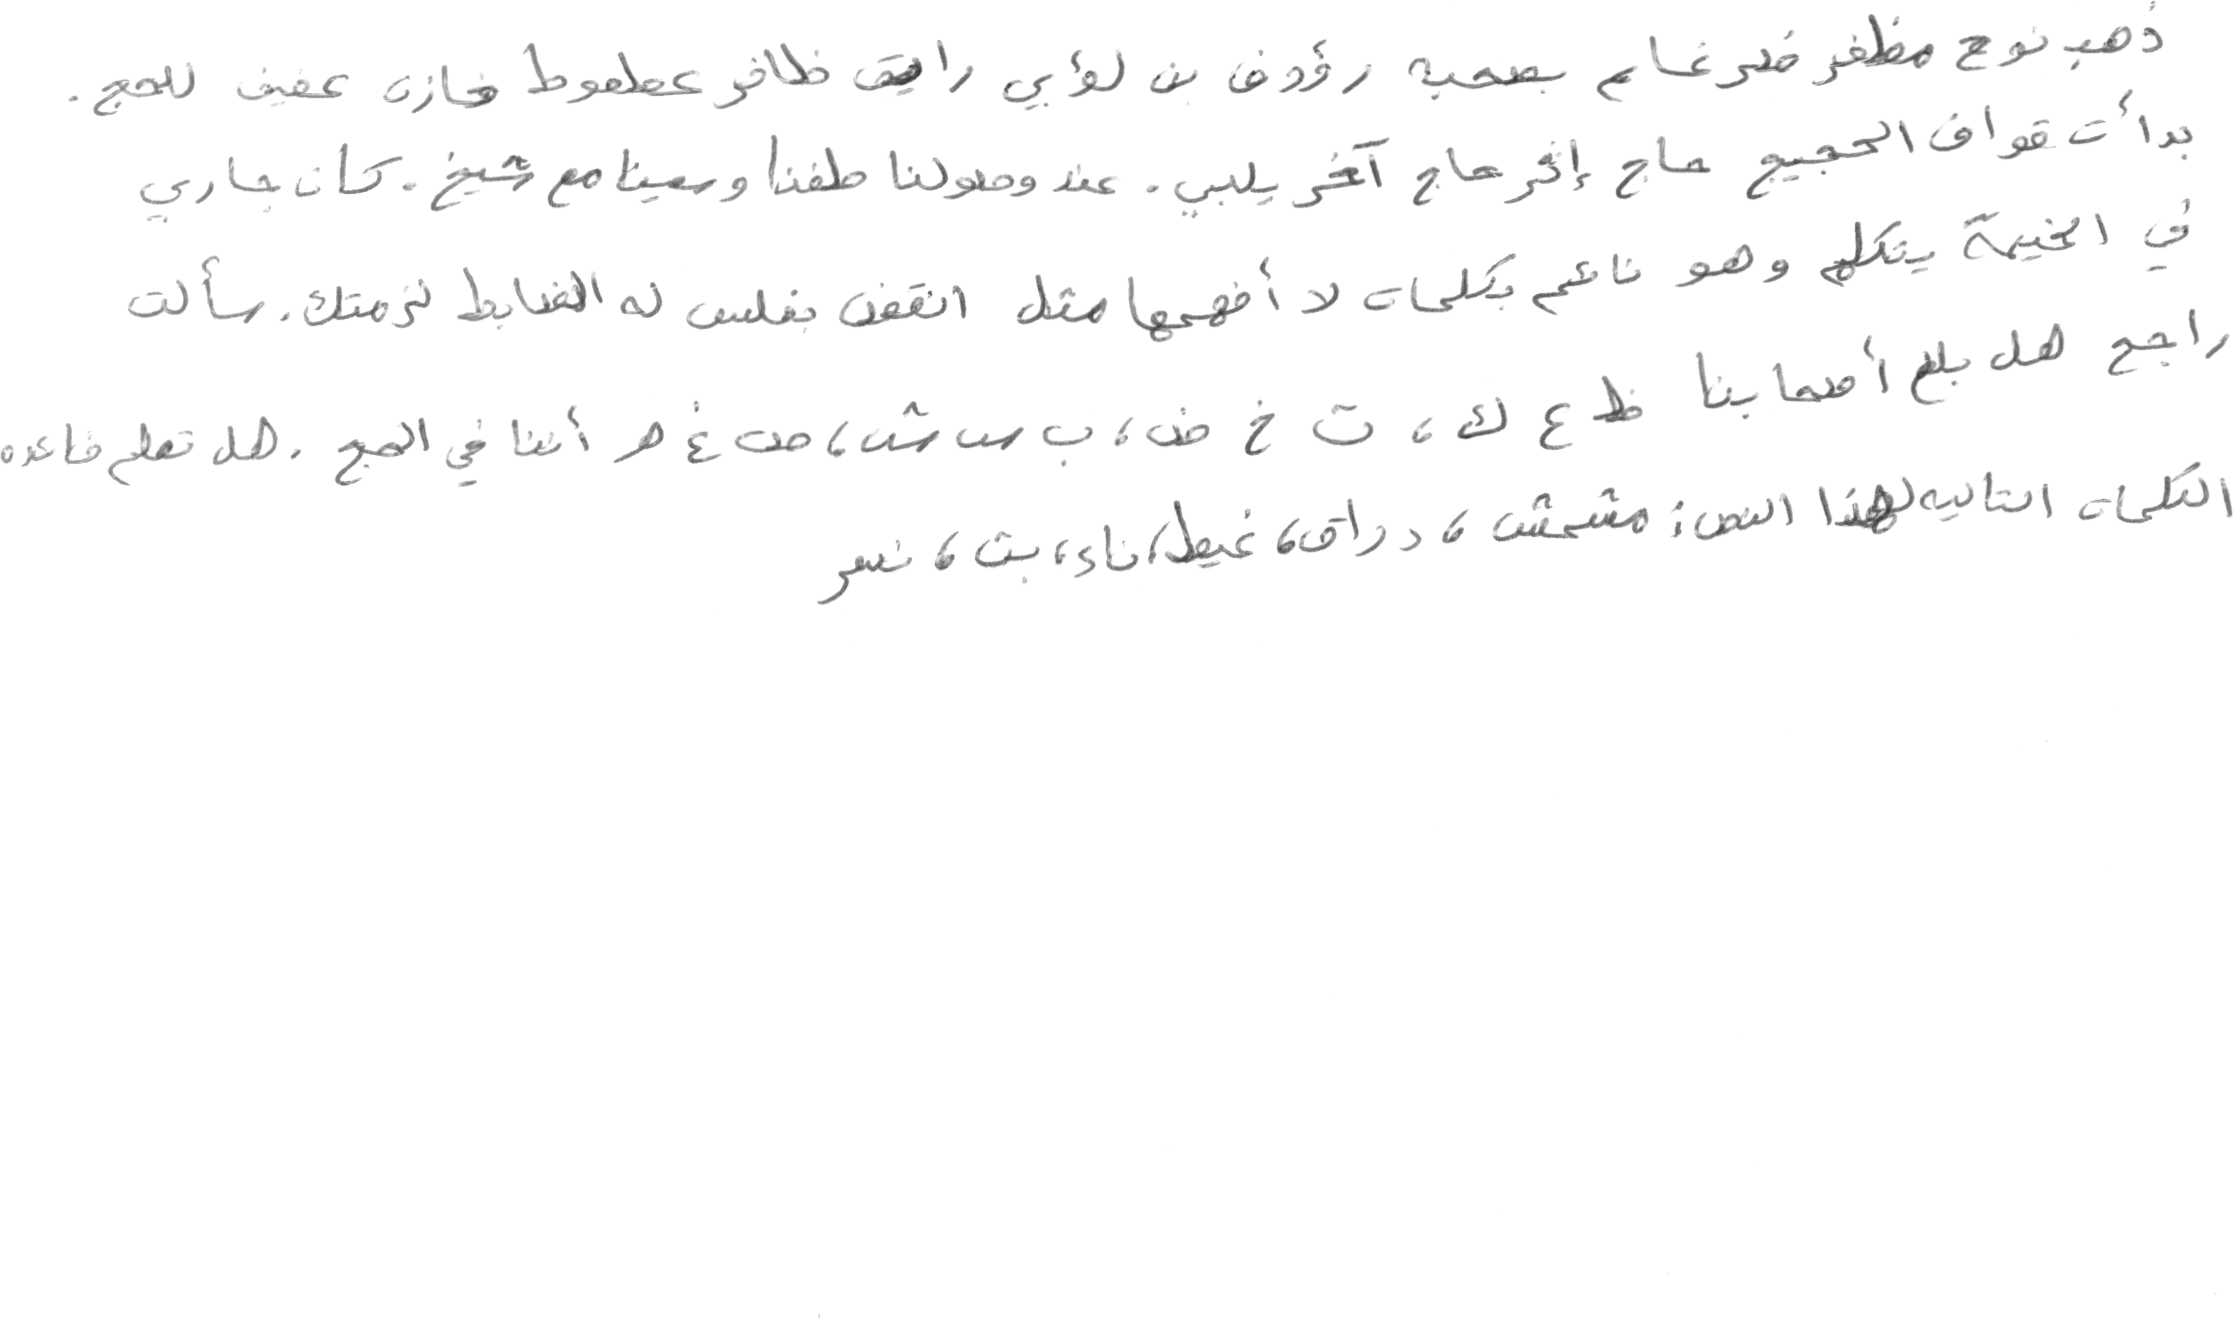 ذهب نوح مظفر ضرغام بصحبه رؤوف بن لؤي رايق ظافر عطعوط خازن عفيف للحج.
بدأت قواف الحجيج حاج إثر حاج آخر يلبي. عند وصولنا طفنا وسعينا مع شيخ. كان جاري
في الخيمة يتكلم وهو نائم بكلمات لا أفهمها مثل انقض بغلس له الضابط لزمتك. سألت
راجح هل بلغ أصحابنا ظ ع ك، ت خ ض، ب س ش، ص غ ه أننا في الحج. هل تعلم فاعده
الكلمات التاليه لهذا النص: مشمش، دراق، غيظ، ناء، بت، نسر